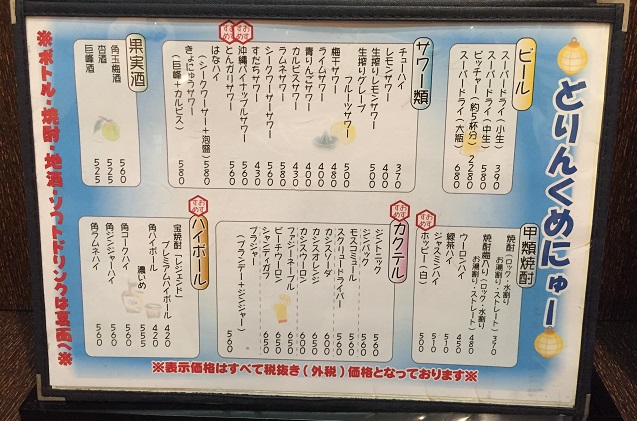 どりんくめにゅー
ビール
スーパードライ(小生) 390
スーパードライ(中生) 580
ピッチャー(約5杯分) 2280
スーパードライ(大瓶) 680
サワー類
チューハイ 370
レモンサワー 400
生搾りレモンサワー 500
生搾りグレープ
フルーツサワー 500
梅干サワー 480
ライムサワー 400
青りんごサワー 400
カルピスサワー 430
ラムネサワー 450
シークワーサーサワー 580
すだちサワー 430
おすすめ
沖縄パイナップルサワー 560
おすすめ
とんがーサワー 560
はなハイ
(シークワーサー+泡盛) 580
きょにゅうサワー
(巨峰+カルピス) 580
果実酒
角玉梅酒 560
杏酒 525
巨峰酒 525
甲類焼酎
焼酎(ロック・水割り
お湯割り・ストレート) 370
焼酎梅入り(ロック・水割り
お湯割り・ストレート) 480
ウーロンハイ 450
緑茶ハイ 510
ジャスミンハイ 510
おすすめ
ホッピー(白) 500
カクテル
おすすめ
ジントニック 560
ジンバック 560
モスコミュール 560
スクリュードライバー 560
カシスソーダ 650
カシスオレンジ 650
カシスウーロン 650
ファジーネーブル 650
ピーチウーロン 650
シャンディガフ 650
ブラジャー
(ブランデー+ジンジャー) 560
ハイボール
おすすめ
宝焼酎「レジェンド」
プレミアムハイボール 420
角ハイボール 420
濃いめ 555
角コークハイ 560
角ジンジャーハイ 560
角ラムネハイ 560
※表示価格はすべて税抜き(外税)価格となっております※
※ボトル・焼酎・地酒・ソフトドリンクは裏面へ※